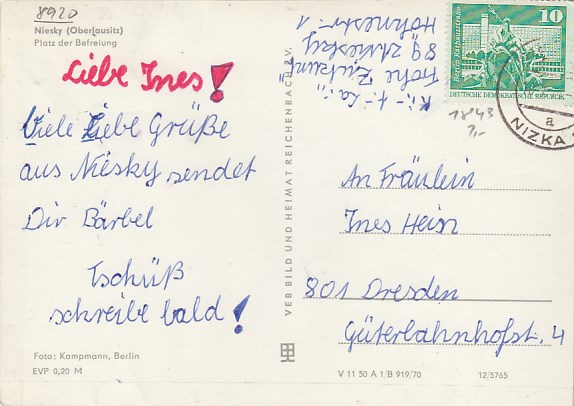 8920
Niesky (Oberlausitz)
Platz der Befreiung
Liebe Ines!
Viele Liebe Grüße
aus Niesky sendet
Dir Bärbel
Tschüß
schreibe bald!
Foto: Kampmann, Berlin
EVP 0,20 M
VEB BILD UND HEIMAT REICHENBACH I. V.
Ki.-f.-La.
"Frohe Zukunft"
89 Niesky
1
Berlin, Rathausstraße
10
DEUTSCHE DEMOKRATISCHE REPUBLIK
1843
?,-
a
NIZKA
An Fräulein
Ines Hein
801 Dresden
Güterbahnhofst. 4
V 11 50 A 1/B 919/70
12/5765